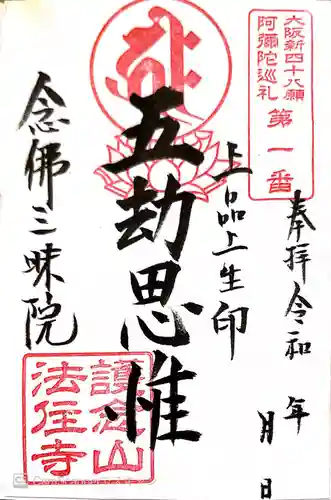 大阪新四十八願
阿彌陀巡礼
第一番
奉拝令和 年 月 日
上品上生印
五劫思惟
念佛三昧院
護念山
法住寺